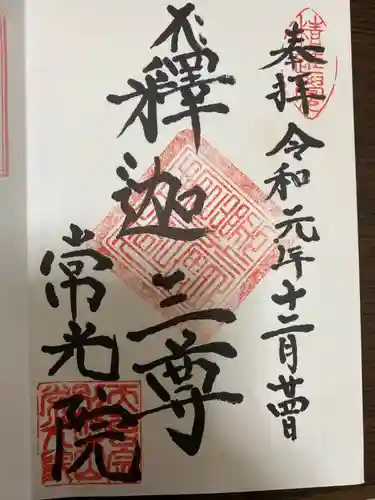 奉拝
令和元年十二月廿四日
釋迦三尊
常光院